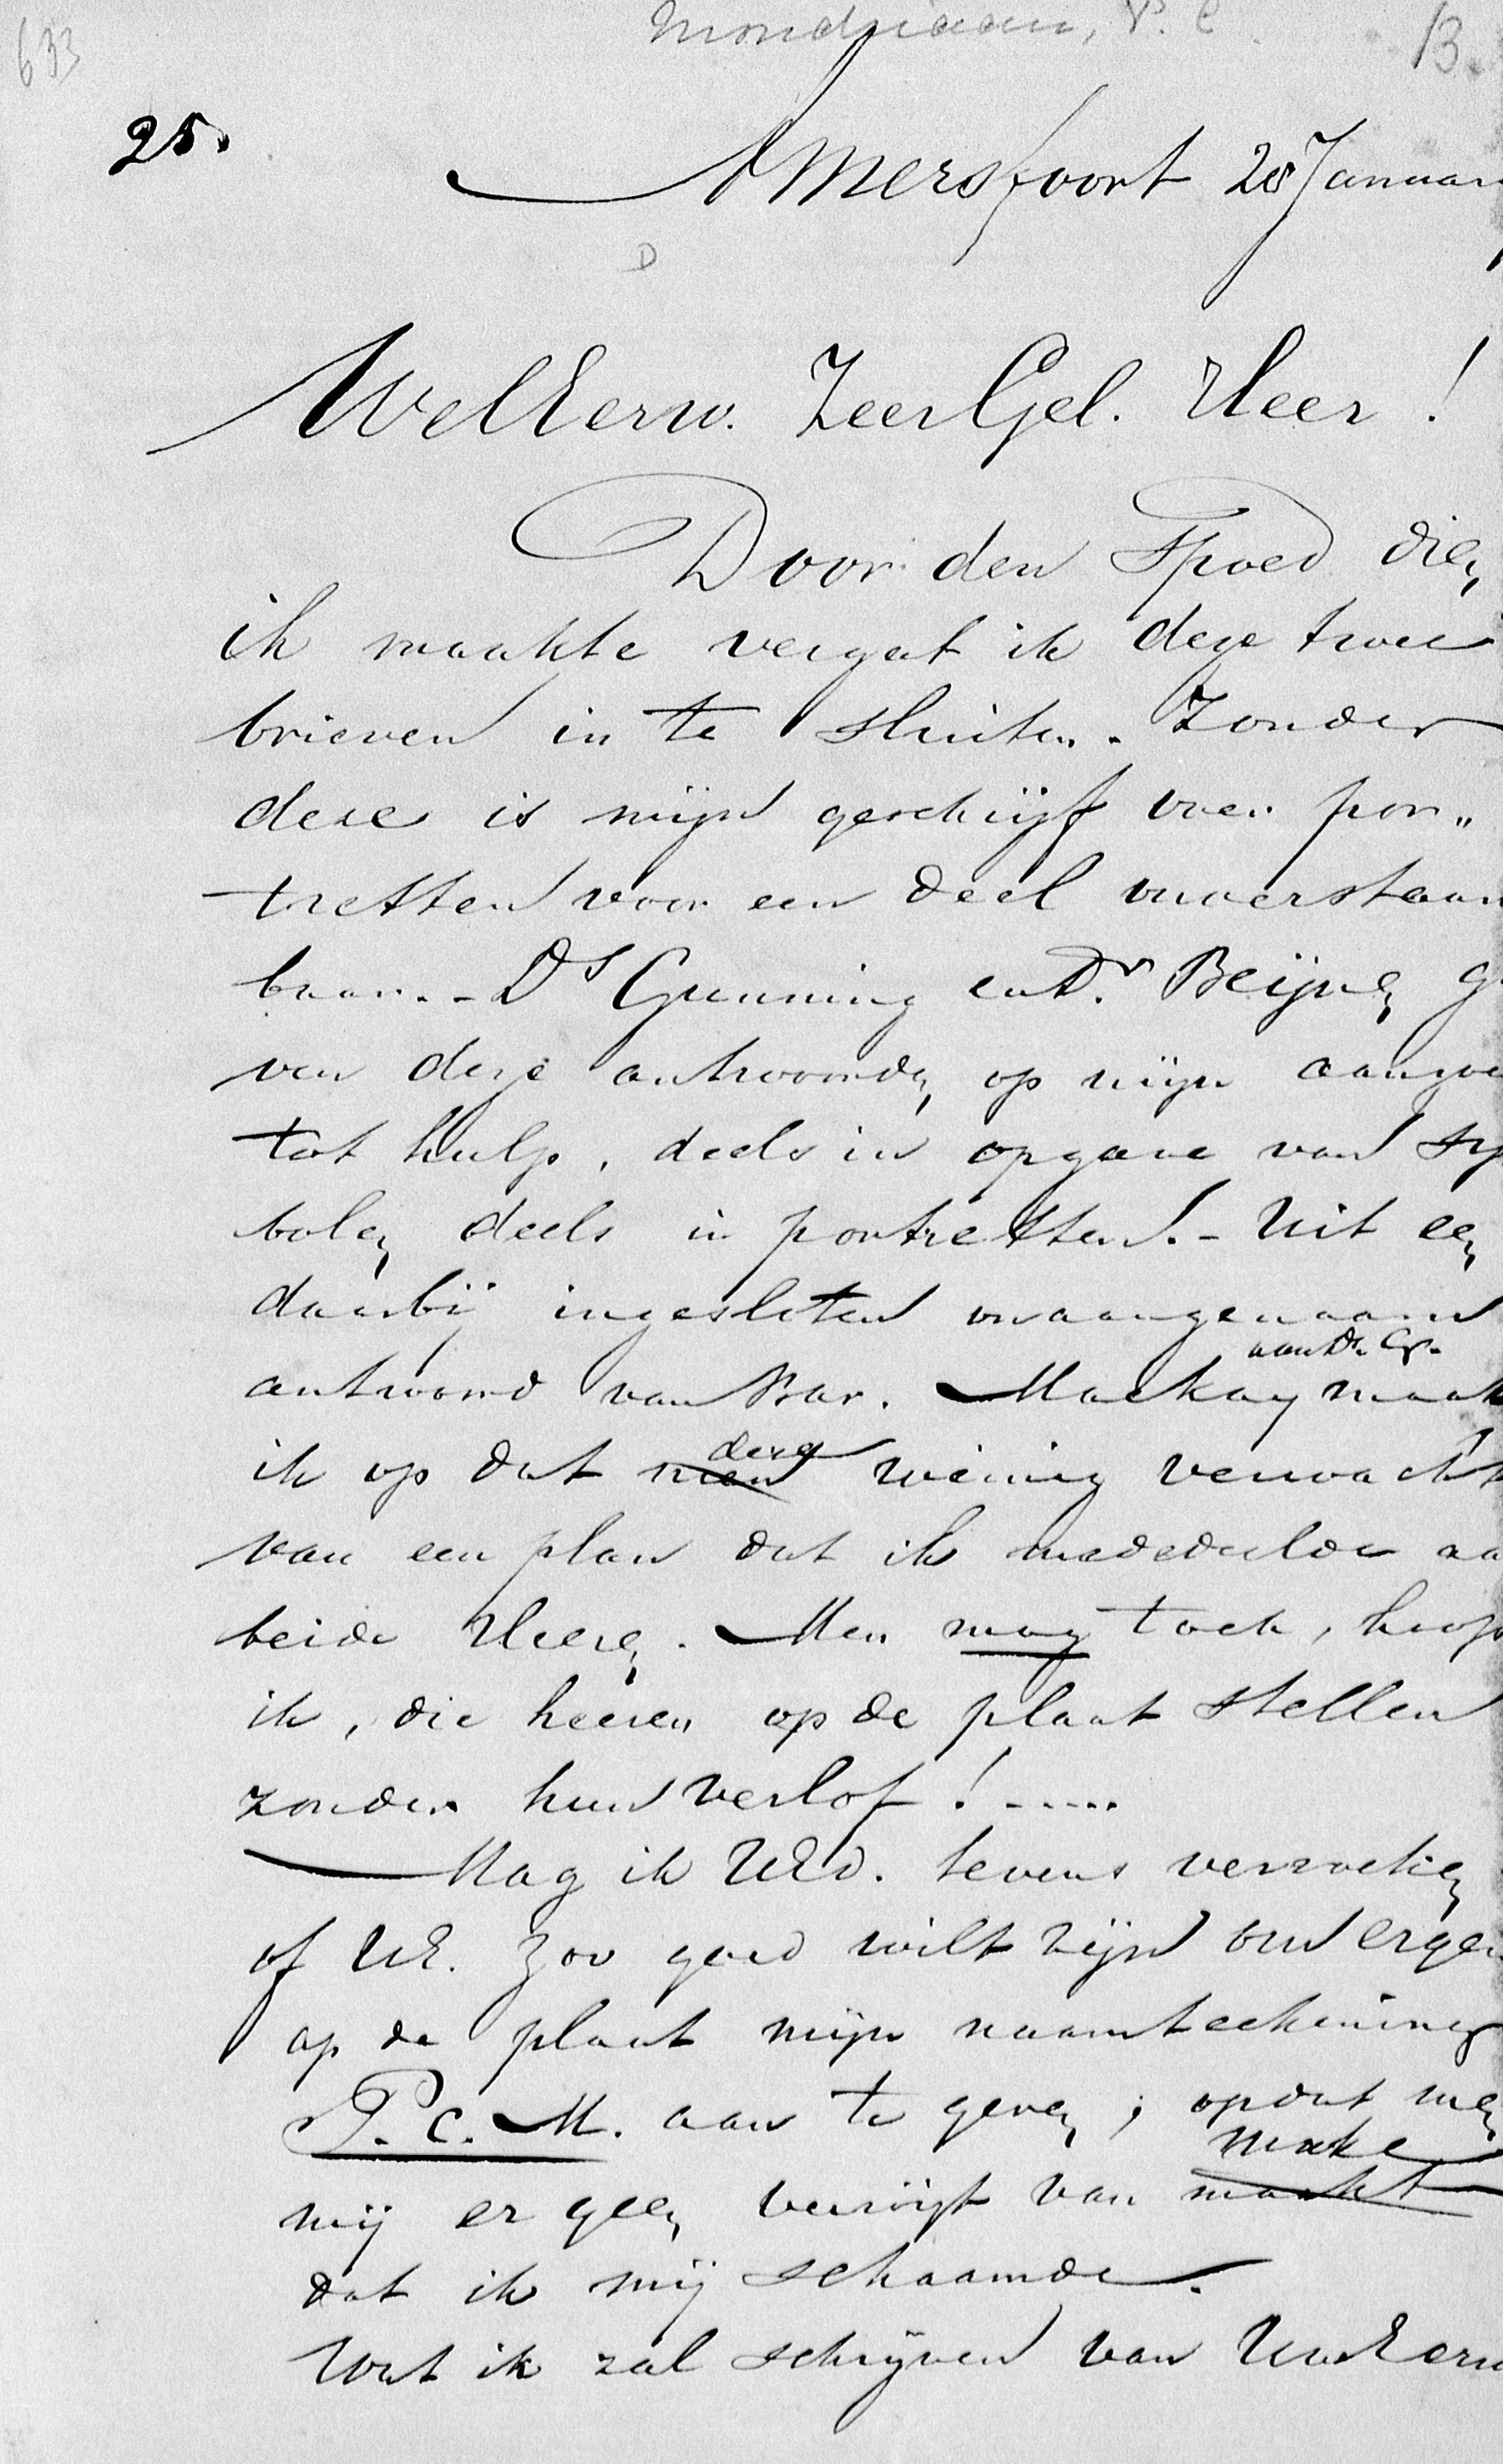 633
Mondriaan, P. C.
B.
25.
Amersfoort 28 Januari
D
WelEerw. ZeerGel. Heer!
Door den spoed dien
ik maakte vergat ik deze twee
brieven in te sluiten. Zonder
deze is mijn geschrijf over por„
tretten voor een deel onverstaan
baar. - Ds Gunning en Dr. Beijnen g
ven deze antwoorden op mijn aanzoe
tot hulp, deels in opgave van sy
bolen deels in portretten. - Uit een
daarbij ingesloten onaangenaam
aan Dr. G.
antwoord van Bar. Mackay maak
deze
ik op dat men weinig verwacht
van een plan dat ik mededeelde aa
beide Heeren. Men mag toch, hoop
ik, die heeren op de plaat stellen
zonder hun verlof! .....
Mag ik UEd. tevens verzoeken
of UE. zoo goed wilt zijn om ergen
op de plaat mijn naamteekening
P. C. M. aan te geven; opdat men
make
mij er geen verwijt van maakt
dat ik mij schaamde.
Wat ik zal schrijven van UwEerw